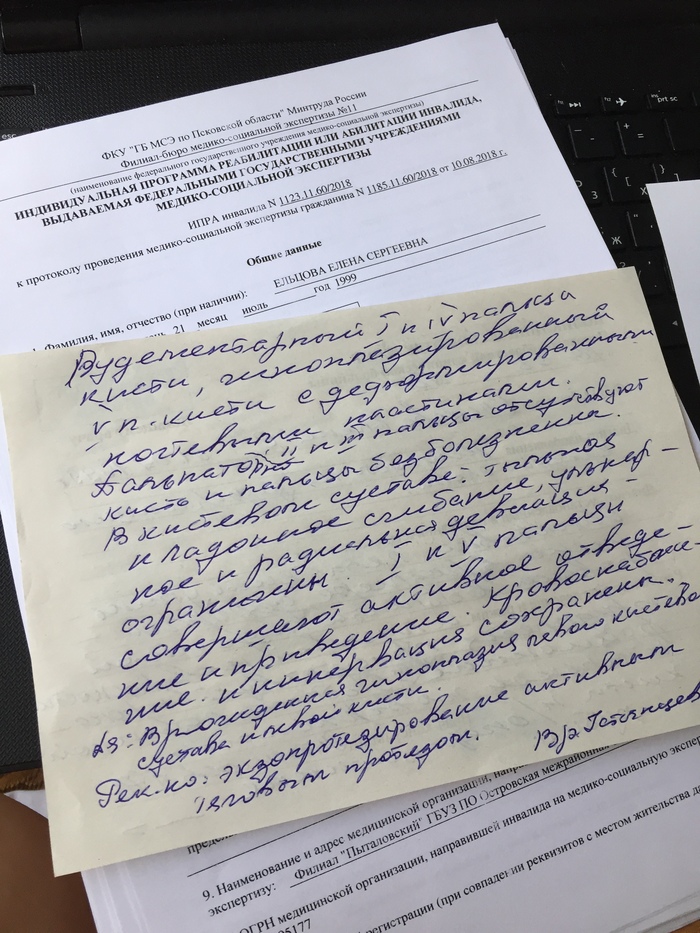 ФКУ "ГБ МСЭ по Псковской области" Минтруда России
Филиал-бюро медико-социальной экспертизы №11
(наименование федерального государственного учреждения медико-социальной экспертизы)
ИНДИВИДУАЛЬНАЯ ПРОГРАММА РЕАБИЛИТАЦИИ ИЛИ АБИЛИТАЦИИ ИНВАЛИДА,
ВЫДАВАЕМАЯ ФЕДЕРАЛЬНЫМИ ГОСУДАРСТВЕННЫМИ УЧРЕЖДЕНИЯМИ
МЕДИКО-СОЦИАЛЬНОЙ ЭКСПЕРТИЗЫ
ИПРА инвалида N 1123.11.60/2018
к протоколу проведения медико-социальной экспертизы гражданина N 1185.11.60/2018 от 10.08.2018 г.
Общие данные
1. Фамилия, имя, отчество (при наличии): ЕЛЬЦОВА ЕЛЕНА СЕРГЕЕВНА
21 месяц июль год 1999
Рудементарный I и IV пальца
кисти, гипоплазированный
V п. кисти с деформированными
ногтевыми пластинами.
Пальпато II и III пальцы отсутствуют
кисть и пальцы безболезненна.
В кистевом суставе: тыльное
и ладонное сгибание, ульнар-
ное и радиальная девиация -
ограничены. I и V пальцы
совершают активное отведе-
ние и приведение. Кровоснабже-
ние и иннервация сохранены.
Ds: Врожденная гипоплазия левого кистевого
сустава и левой кисти.
Рек-но: экзопротезирование активным
тяговым протезом. Вр.
9. Наименование и адрес медицинской организации, направившей инвалида на медико-социальную
экспертизу: Филиал "Пыталовский" ГБУЗ ПО Островская межрайонная
ОГРН медицинской организации, направившей
регистрации (при совпадении реквизитов с местом жительства